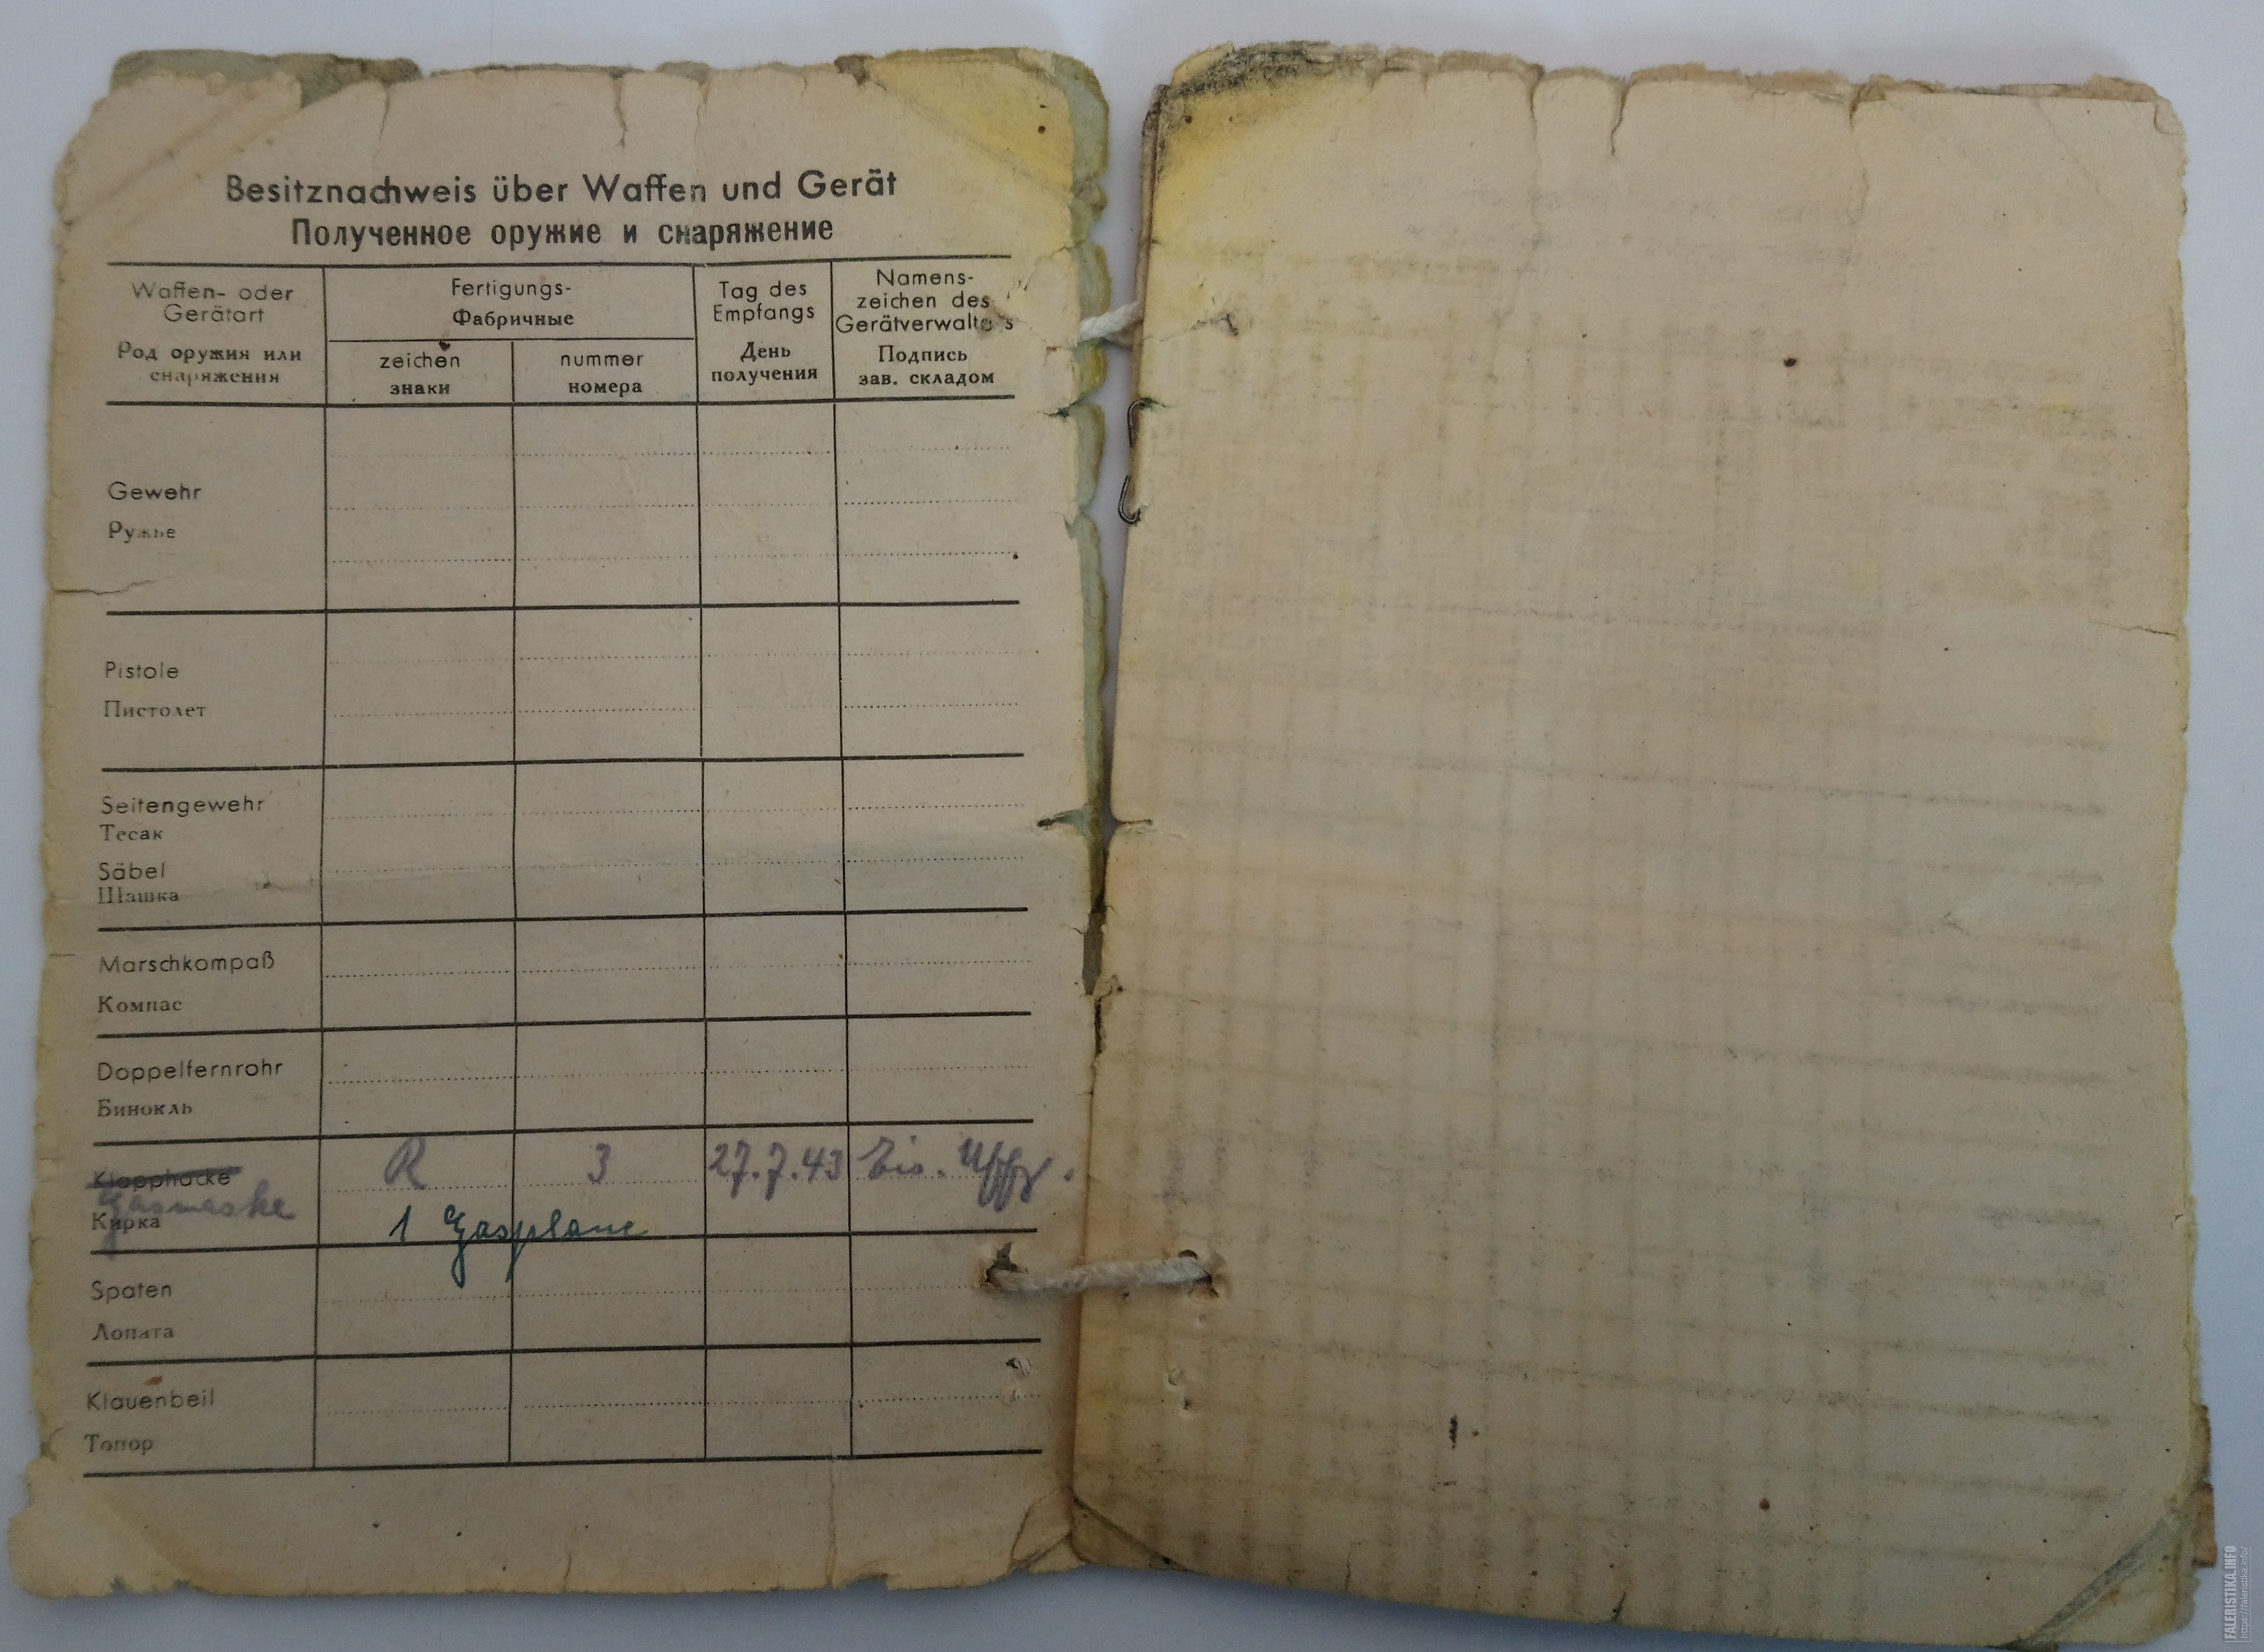 Besitznachweis über Waffen und Gerät
Полученное оружие и снаряжение
Waffen- oder
Gerätart
Род оружия или
снаряжения
Fertigungs-
Фабричные
zeichen
знаки
nummer
номера
Tag des
Empfangs
День
получения
Namens-
zeichen des
Gerätverwalters
Подпись
зав. складом
Gewehr
Ружье
Pistole
Пистолет
Seitengewehr
Тесак
Säbel
Шашка
Marschkompaß
Компас
Doppelfernrohr
Бинокль
Klapphacke R 3 27.7.43 Uffz.
Gasmaske
Кирка
1 Gasplane
Spaten
Лопата
Klauenbeil
Топор
FALERISTIKA.INFO
https://faleristika.info/